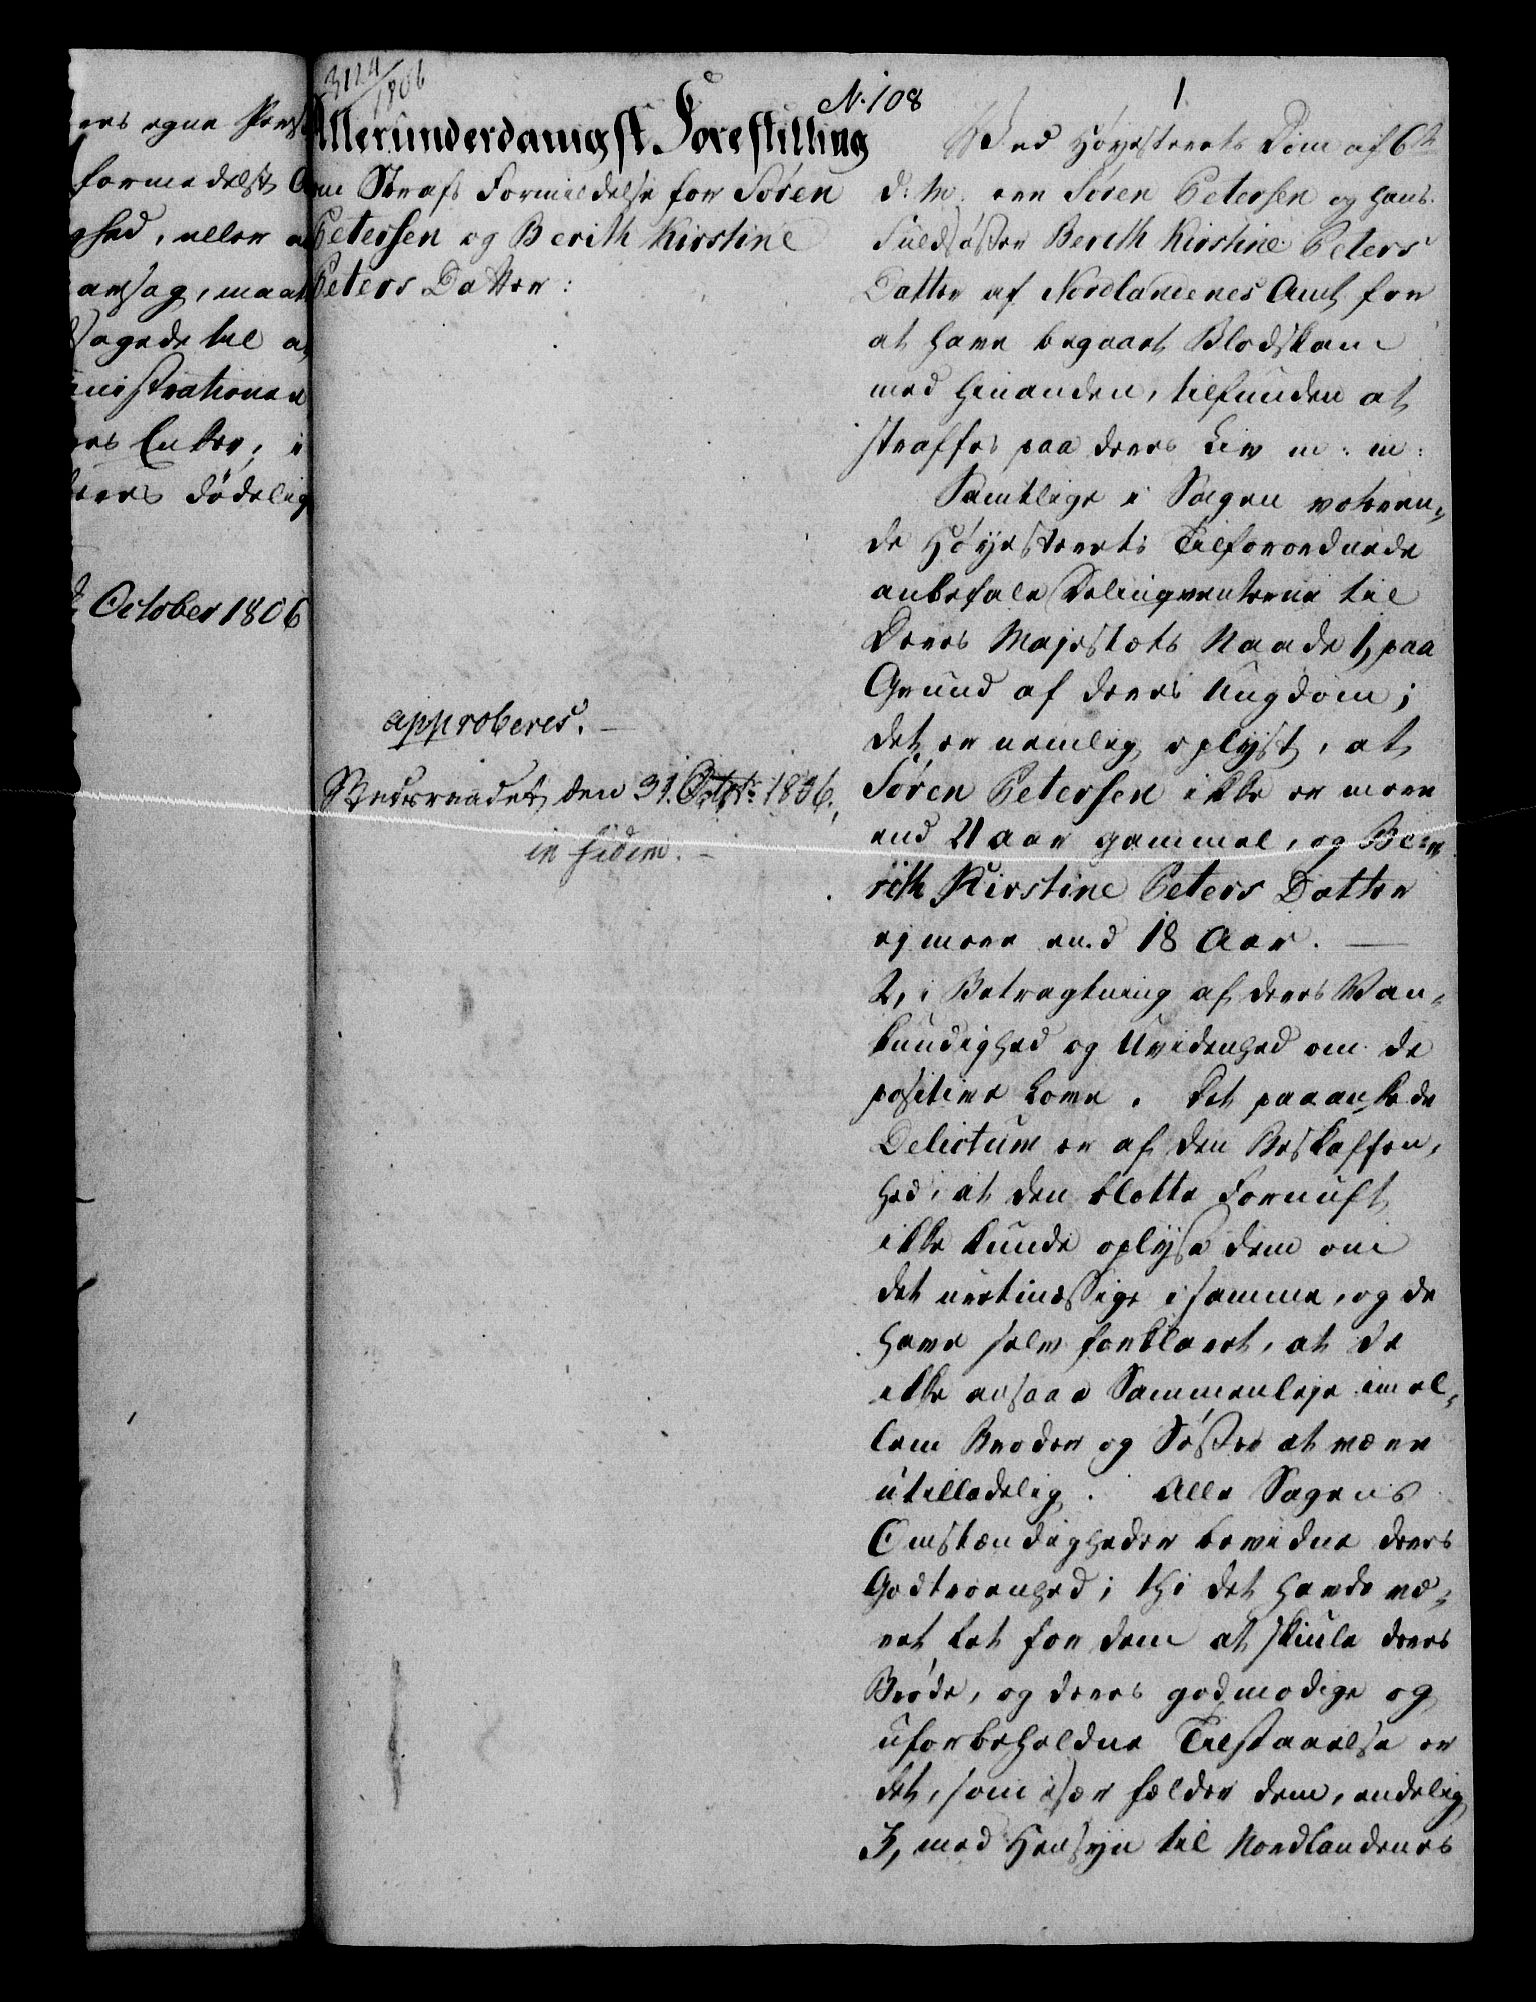 ers egne Pers
formedelst
ghed, eller
aarsag, maat
sagede til a
inistrationen
res Enker, i
deres dødelig
October 1806
3124/1806
No. 108
1
Allerunderdanigst Forestilling
om Straffs Formildelse for Søren
Petersen og Berith Kirstine
Peters Datter:
approberes.
Statsraadet den 31. Octbr: 1806.
in fidem.
Ved Høyesterets Dom af 6te
d: M. ere Søren Petersen og hans
Fuldsøster Berith Kirstine Peters
Datter af Nordlandenes Amt for
at have begaaet Blodskam
med hinanden, tilfunden at
straffes paa deres Liv m: m:
Samtlige i Sagen voteren-
de Høyesterets Tilforordnede
anbefale Delinqventerne til
Deres Majestæts Naade 1, paa
Grund af deres Ungdom;
det er nemlig oplyst, at
Søren Petersen ikke er meer
end 21 aar gammel, og Be-
rith Kirstine Peters Datter
ej meer end 18 Aar. —
2, i Betragtning af deres Van-
kundighed og Uvidenhed om de
positive Love. Det paaankede
Delictum er af den Beskaffen-
hed, at den blotte Fornuft
ikke kunde oplyse dem om
det uretmæssige i samme, og de
have selv forklaret, at de
ikke ansaae Sammenleje imel-
lem Broder og Søster at være
utilladelig. Alle Sagens
Omstændigheder bevidne deres
Godtroenhed; thi det havde væ-
ret let for dem at skiule deres
Brøde, og deres godmodige og
uforbeholdne Tilstaaelse er
det, som især fælder dem, endelig
3, med Hensyn til Nordlandenes